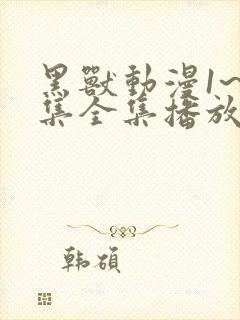 黑獸動漫1~
集全集播放
韩碩